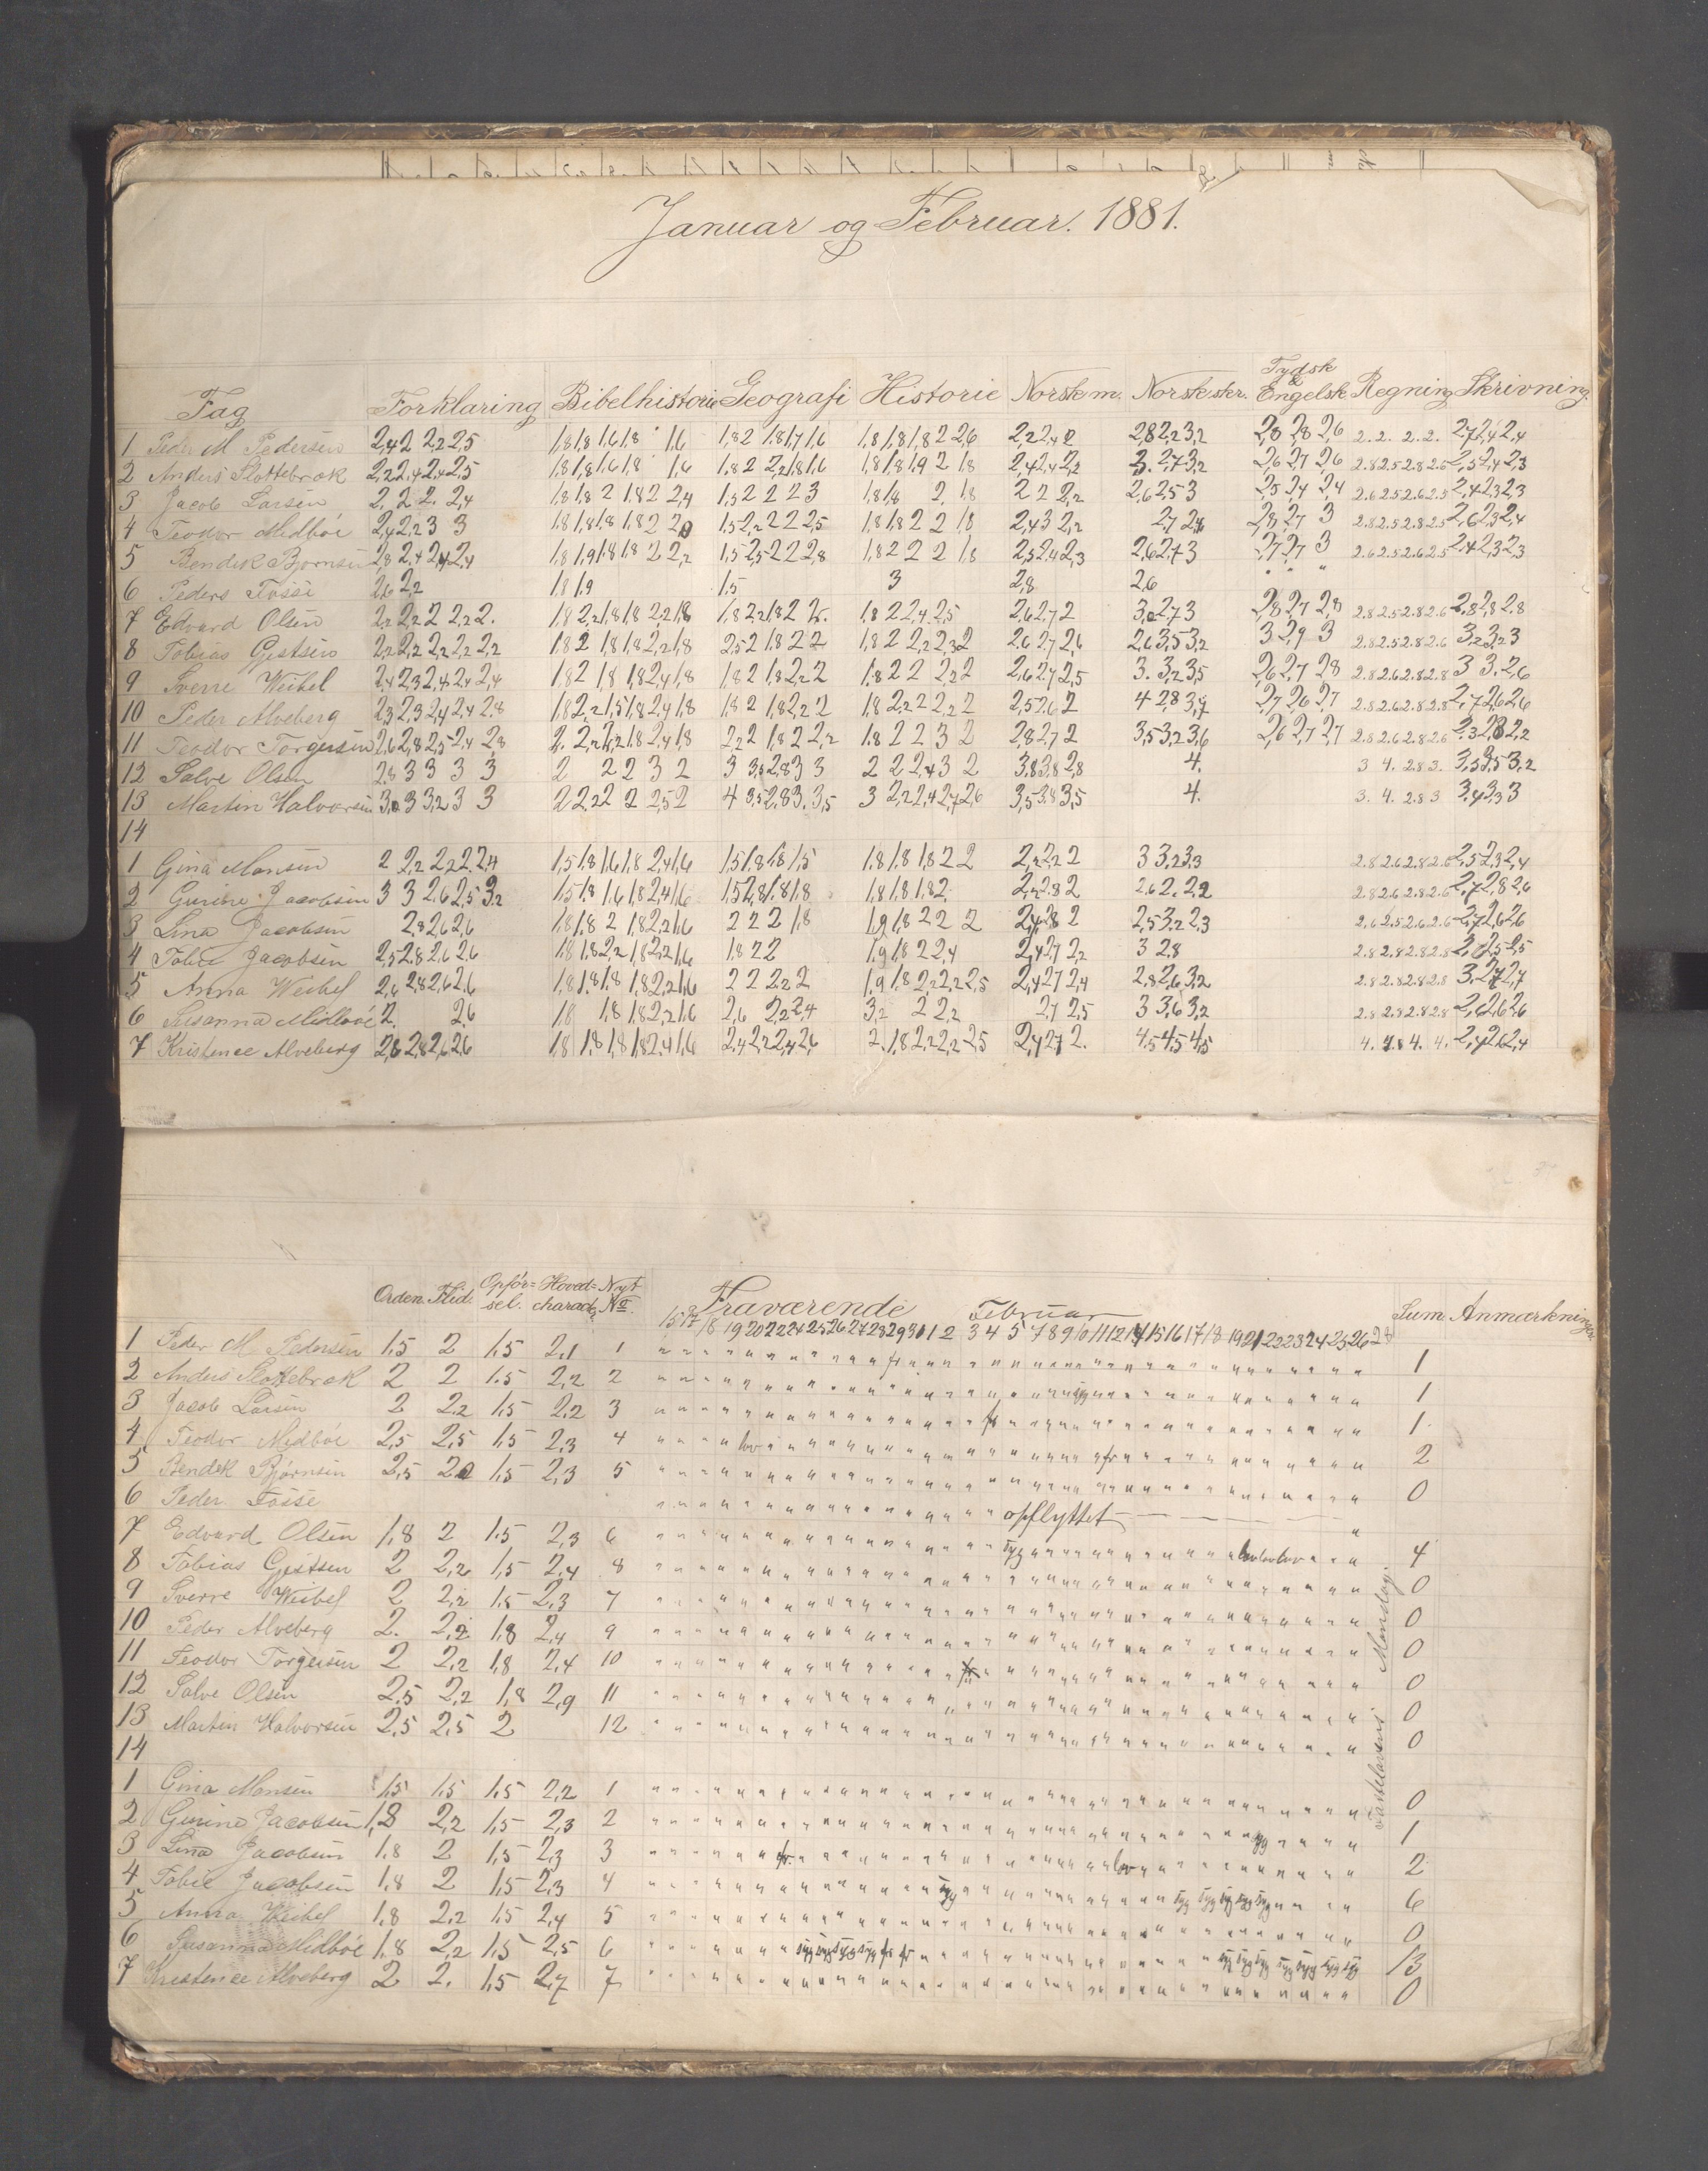 Januar og Februar. 1881.
Fag Forklaring Bibelhistorie Geografi Historie Norsk m. Norsk skr. Tydsk & Engelsk Regning Skrivning.
1 Peder M Pedersen 2,4 2 2,2 2,5 1,8 1,8 1,6 1,8 1,6 1,8 2 1,8 1,7 1,6 1,8 1,8 1,8 2 2,6 2,2 2,4 2 2,8 2,2 3,2 2,8 2,8 2,6 2. 2. 2. 2. 2,7 2,4 2,4
2 Anders Slottebrok 2,2 2,4 2,4 2,5 1,8 1,8 1,6 1,8 1,6 1,8 2 2,2 1,8 1,6 1,8 1,8 1,9 2 1,8 2,4 2,4 2,2 3. 2,7 3,2 2,6 2,7 2,6 2.8 2.5 2.8 2.5 2,5 2,4 2,3
3 Jacob Larsen 2, 2, 2. 2,4 1,8 1,8 2 1,8 2 2,4 1,5 2 2 2 3 1,8 1,8 2, 1,8 2 2 2,2 2,6 2,5 3 2,5 2,4 2,4 2.6 2.5 2.6 2.5 2,4 2,3 2,3
4 Teodor Midböe 2,4 2,2 3 3 1,8 1,8 1,8 1,8 2 2 1,5 2,2 2 2 2,5 1,8 1,8 2 2 1,8 2,4 3 2,2 2,7 2,8 2,8 2,7 3 2.8 2.5 2.8 2.5 2,6 2,3 2,4
5 Bendik Bjørnsen 2,8 2,4 2,4 2,4 1,8 1,9 1,8 1,8 2 2,2 1,5 2,5 2 2 2,8 1,8 2 2 2 1,8 2,5 2,4 2,3 2,6 2,7 3 2,7 2,7 3 2.6 2.5 2.6 2.5 2,4 2,3 2,3
6 Peders Fosse 2,6 2,2 1,8 1,9 1,5 3 2,8 2,6 " " "
7 Edvard Olsen 2,2 2,2 2 2,2 2. 1,8 2,2 1,8 1,8 2,2 1,8 1,8 2,2 1,8 2 1,8 2 2,4 2,5 2,6 2,7 2 3,2 2,7 3 2,8 2,7 2,8 2.8 2.5 2.8 2.6 2,8 2,8 2,8
8 Tobias Gertsen 2,2 2,2 2,2 2,2 2,2 1,8 2 1,8 1,8 2,2 1,8 2,5 2 1,8 2 2 1,8 2 2,2 2,3 2 2,6 2,7 2,6 2,6 3,5 3,2 3 2,9 3 2.8 2.5 2.8 2.6 3,2 3,2 3
9 Sverre Weibel 2,4 2,3 2,4 2,4 2,4 1,8 2 1,8 1,8 2,4 1,8 1,8 2 1,8 2,2 2 1,8 2 2 2,2 2 2,6 2,7 2,5 3. 3,2 3,5 2,6 2,7 2,8 2.8 2.6 2.8 2.8 3 3. 2,6
10 Peder Alveberg 2,3 2,3 2,4 2,4 2,8 1,8 2,2 1,5 1,8 2,4 1,8 1,8 2 1,8 2,2 2 1,8 2,2 2 2,2 2 2,5 2,6 2 4 2,8 3,4 2,7 2,6 2,7 2.8 2.6 2.8 2.8 2,7 2,6 2,6
11 Teodor Torgersen 2,6 2,8 2,5 2,4 2,8 2. 2,2 1,2 1,8 2,4 1,8 2,2 2 1,8 2 2,2 1,8 2 2 3 2 2,8 2,7 2 3,5 3,2 3,6 2,6 2,7 2,7 2.8 2.6 2.8 2.8 2,3 2,8 2,2
12 Salve Olsen 2,8 3 3 3 3 2 2 2 3 2 3 3,5 2,8 3 3 2 2 2,4 3 2 3,8 3,8 2,8 4. 3 4. 2.8 3. 3,5 3,5 3,2
13 Martin Halvorsen 3,2 3 3,2 3 3 2 2,2 2 2 2,5 2 4 3,5 2,8 3. 3,5 3 2,2 2,4 2,7 2,6 3,5 3,8 3,5 4. 3. 4. 2.8 3 3,4 3,3 3
14
1 Gina Monsen 2 2,2 2,2 2 2,4 1,5 1,8 1,6 1,8 2,4 1,6 1,5 1,8 1,8 1,5 1,8 1,8 1,8 2 2 2,2 2,2 2 3 3,2 3,3 2.8 2.6 2.8 2.6 2,5 2,3 2,4
2 Gurine Jacobsen 3 3 2,6 2,5 3,2 1,5 1,8 1,6 1,8 2,4 1,6 1,5 2,8 1,8 1,8 1,8 1,8 1,8 2. 2,2 2,8 2 2,6 2. 2,2 2.8 2.6 2.8 2.6 2,7 2,8 2,6
3 Lina Jacobsen 2,8 2,6 2,6 1,8 1,8 2 1,8 2,2 1,6 2 2 2 1,8 1,9 1,8 2 2 2 2,4 2,8 2 2,5 3,2 2,3 2.6 2.5 2.6 2.6 2,7 2,6 2,6
4 Tobie Jacobsen 2,5 2,8 2,6 2,6 1,8 1,8 2,2 1,8 2,2 1,6 1,8 2 2 1,9 1,8 2 2,4 2,4 2,7 2,2 3 2,8 2.8 2.8 2.8 2.8
5 Anna Weibel 2,6 2,8 2,6 2,6 1,8 1,8 1,8 1,8 2,2 1,6 2 2 2,2 2 1,9 1,8 2,2 2,2 2,5 2,4 2,7 2,4 2,8 2,6 3,2 2.8 2.8 2.8 2.8 3, 2,7 2,7
6 Susanna Midböe 2. 2,6 1,8 1,8 1,8 2,2 1,6 2,6 2,2 2,4 3,2 2 2,2 2,7 2,5 3 3,6 3,2 2.8 2.8 2.8 2.8 2,6 2,6 2,6
7 Kristence Alveberg 2,8 2,8 2,6 2,6 1,8 1,8 1,8 1,8 2,4 1,6 2,4 2,2 2,4 2,6 2. 1,8 2,2 2,2 2,5 2,4 2,7 2. 4,5 4,5 4,5 4. 4.8 4. 4. 2,4 2,6 2,4
Orden. Flid. Opför=sel. Hoved=charact. Nyt No. Fraværende Februar Sum Anmærkninger
15 17 18 19 20 21 22 24 25 26 27 28 29 30 1 2 3 4 5 7 8 9 10 11 12 14 15 16 17 18 19 21 22 23 24 25 26 28
1 Peder M Pedersen 1,5 2 1,5 2,1 1 fr 1
2 Anders Slottebrok 2 2 1.5 2,2 2 syg 1
3 Jacob Larsen 2 2,2 1,5 2,2 3 fr 1
4 Teodor Midböe 2,5 2,5 1,5 2,3 4 lov fr 2
5 Bendik Bjørnsen 2,5 2,2 1,5 2,3 5 0
6 Peder Fosse opflyttet
7 Edvard Olsen 1,8 2 1,5 2,3 6 syg lov lov lov 4
8 Tobias Gertsen 2 2,2 1,5 2,4 8 0
9 Sverre Weibel 2 2,2 1,5 2,3 7 0
10 Peder Alveberg 2. 2,2 1,8 2,4 9 0
11 Teodor Torgersen 2 2,2 1,8 2,4 10 0
12 Salve Olsen 2,5 2,2 1,8 2,9 11 0
13 Martin Halvorsen 2,5 2,5 2 12 0
14
1 Gina Monsen 1,5 1,5 1,5 2,2 1 0
2 Gurine Jacobsen 1,8 2,2 1,5 2,3 2 syg 1
3 Lina Jacobsen 1,8 2 1,5 2,3 3 fr. lov 2
4 Tobie Jacobsen 1,8 2 1,5 2,3 4 syg syg syg syg syg syg 6
5 Anna Weibel 1,8 2,2 1,5 2,4 5 0
6 Susanna Midböe 1,8 2,2 1,5 2,5 6 syg syg syg syg fr fr syg syg syg syg syg syg syg 13
7 Kristence Alveberg 2 2. 1,5 2,7 7 0
Fastelavens Mandag.